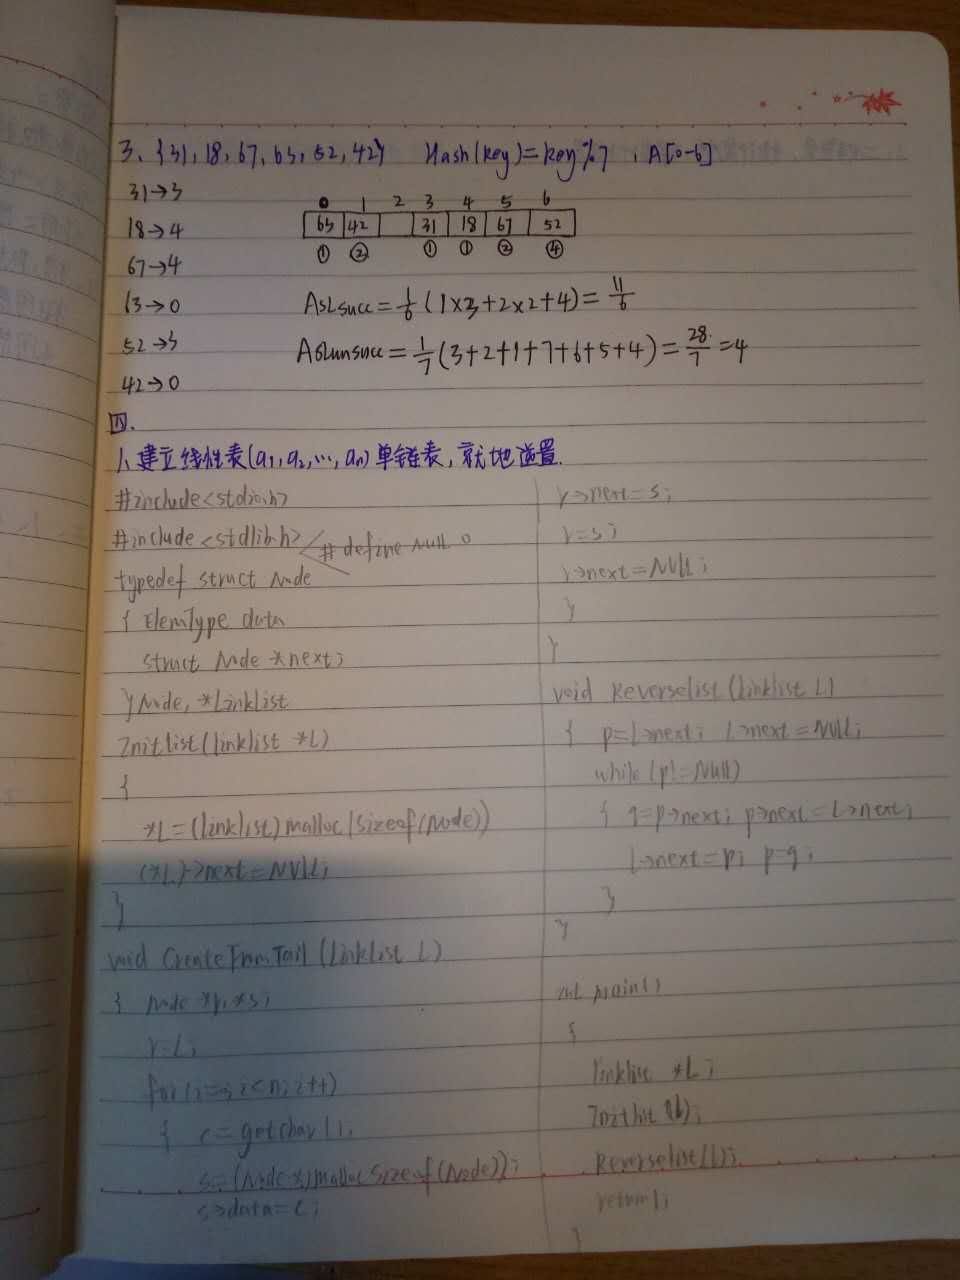 3、{31,18,67,63,52,42} Hash(key)=key%7 , A[0-6]
31→3
18→4
67→4
63→0
52→3
42→0
0 1 2 3 4 5 6
63 42 31 18 67 52
① ② ① ① ② ④
ASLsucc=1/6(1×3+2×2+4)=11/6
ASLunsucc=1/7(3+2+1+7+6+5+4)=28/7=4
四.
1、建立线性表(a1,a2,…,an)单链表,就地逆置.
#include<stdio.h>
#include<stdlib.h>
# define NULL 0
typedef struct Node
{ ElemType data
struct Node *next;
}Node, *Linklist
Initlist(linklist *L)
{
*L=(linklist)malloc(sizeof(Node))
(*L)->next=NULL;
}
void CreateFromTail(LinkList L)
{ Node *r,*s;
r=L;
for(i=0;i<n;i++)
{ c=getchar();
s=(Node*)malloc(sizeof(Node));
s->data=c;
r->next=s;
r=s;
r->next=NULL;
}
}
void Reverselist(linklist L)
{ p=L->next; L->next=NULL;
while(p!=Null)
{ q=p->next; p->next=L->next;
L->next=p; p=q;
}
}
int main()
{
linklist *L;
Initlist(L);
Reverselist(L);
return1;
}